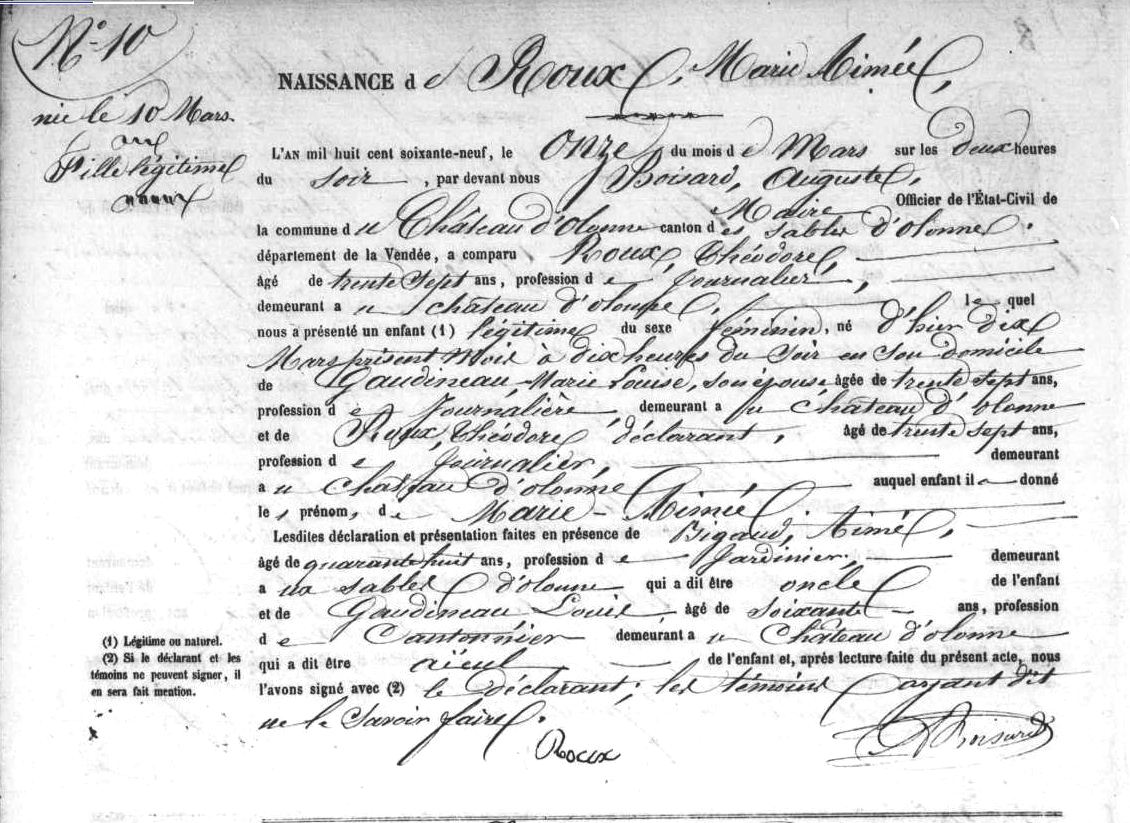 N° 10
née le 10 Mars.
Fille légitime
NAISSANCE de Roux, Marie Aimée,
L'AN mil huit cent soixante-neuf, le Onze du mois de Mars sur les deux heures
du soir, par devant nous Boisard, Auguste,
Maire Officier de l'État-Civil de
la commune du Château d'olonne canton des sables d'olonne.
département de la Vendée, a comparu Roux, Théodore,
âgé de trente sept ans, profession de Journalier,
demeurant au château d'olonne, lequel
nous a présenté un enfant (1) légitime du sexe féminin, né d'hier dix
Mars présent Mois à dix heures du Soir en son domicile
de Gaudineau Marie Louise, son épouse âgée de trente sept ans,
profession de Journalière demeurant au Château d'olonne
et de Roux, Théodore, déclarant, âgé de trente sept ans,
profession de Journalier, demeurant
au Château d'olonne auquel enfant il a donné
les prénoms de Marie-Aimée
Lesdites déclaration et présentation faites en présence de Bigaud, Aimé,
âgé de quarante huit ans, profession de Jardinier, demeurant
aux sables d'olonne qui a dit être oncle de l'enfant
et de Gaudineau, Louis, âgé de soixante ans, profession
de Cantonnier demeurant au Château d'olonne
qui a dit être aïeul de l'enfant et, après lecture faite du présent acte, nous
l'avons signé avec (2) le déclarant; les témoins ayant dit
ne le savoir faire.
(1) Légitime ou naturel.
(2) Si le déclarant et les
témoins ne peuvent signer, il
en sera fait mention.
Roux
A Boisard